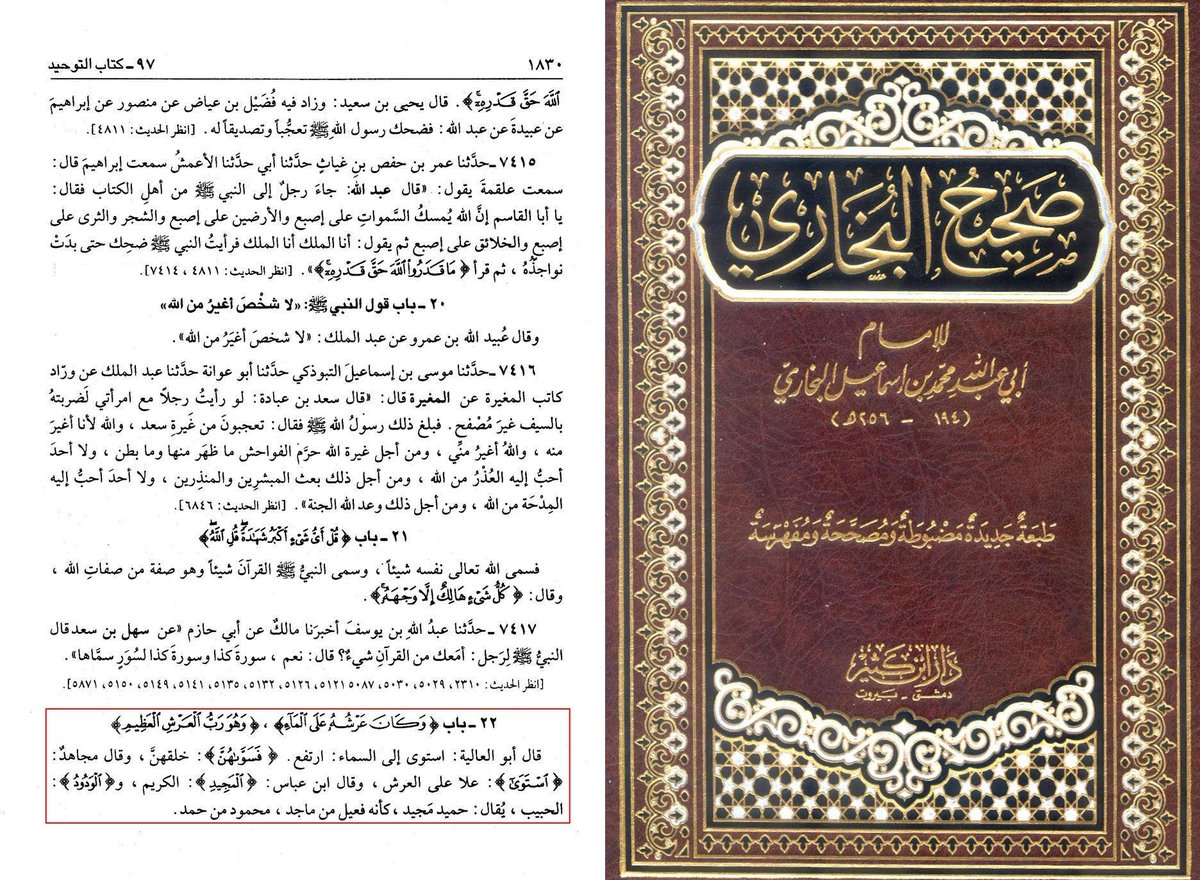 ١٨٣٠
٩٧ - كتاب التوحيد
ٱللَّهَ حَقَّ قَدْرِهِۦٓ﴾. قال يحيى بن سعيد: وزاد فيه فُضَيْل بن عياض عن منصور عن إبراهيمَ
عن عبيدةَ عن عبد الله: فضحك رسول الله ﷺ تعجُّباً وتصديقاً له. [انظر الحديث: ٤٨١١].
٧٤١٥ - حدَّثنا عمر بن حفص بنِ غياثٍ حدَّثنا أبي حدَّثنا الأعمشُ سمعت إبراهيمَ قال:
سمعت علقمةَ يقول: «قال عبد الله: جاءَ رجلٌ إلى النبي ﷺ من أهلِ الكتاب فقال:
يا أبا القاسم إنَّ الله يُمسكُ السَّموات على إصبع والأرضين على إصبع والشجر والثرى على
إصبع والخلائق على إصبع ثم يقول: أنا الملك أنا الملك فرأيتُ النبي ﷺ ضحِك حتى بدَتْ
نواجذُه، ثم قرأ ﴿مَا قَدَرُواْ ٱللَّهَ حَقَّ قَدْرِهِۦٓ﴾». [انظر الحديث: ٤٨١١، ٧٤١٤].
٢٠ - باب قول النبي ﷺ: «لا شخْصَ أغيرُ من الله»
وقال عُبيد الله بن عمرو عن عبد الملك: «لا شخصَ أغيَرُ من الله».
٧٤١٦ - حدَّثنا موسى بن إسماعيلَ التبوذكي حدَّثنا أبو عوانة حدَّثنا عبد الملك عن ورّاد
كاتب المغيرة عن المغيرة قال: «قال سعد بن عبادة: لو رأيتُ رجلاً مع امرأتي لَضربتهُ
بالسيف غيرَ مُصْفح. فبلغ ذلك رسولُ الله ﷺ فقال: تعجبونَ من غَيرةِ سعد، والله لأنا أغيرَ
منه، واللهُ أغيرُ منِّي، ومن أجل غيرة الله حرَّم الفواحش ما ظهَر منها وما بطن، ولا أحدَ
أحبُّ إليه العُذْرُ من الله، ومن أجل ذلك بعث المبشرين والمنذِرين، ولا أحدَ أحبُّ إليه
المِدْحَة من الله، ومن أجل ذلك وعد الله الجنة». [انظر الحديث: ٦٨٤٦].
٢١ - باب ﴿قُلۡ أَيُّ شَيۡءٍ أَكۡبَرُ شَهَٰدَةٗۖ قُلِ ٱللَّهُۖ﴾
فسمى الله تعالى نفسه شيئاً، وسمى النبيُّ ﷺ القرآنَ شيئاً وهو صفة من صفاتِ الله،
وقال: ﴿كُلُّ شَيۡءٍ هَالِكٌ إِلَّا وَجۡهَهُۥۚ﴾.
٧٤١٧ - حدَّثنا عبدُ اللهِ بن يوسفَ أخبرَنا مالكٌ عن أبي حازم «عن سهل بن سعد قال
النبيُّ ﷺ لِرَجل: أمَعك من القرآنِ شيءٌ؟ قال: نعم، سورةَ كذا وسورةَ كذا لسُوَرٍ سمَّاها».
[انظر الحديث: ٢٣١٠، ٥٠٢٩، ٥٠٣٠، ٥٠٨٧، ٥١٢١، ٥١٢٦، ٥١٣٢، ٥١٣٥، ٥١٤١، ٥١٤٩، ٥١٥٠، ٥٨٧١].
٢٢ - باب ﴿وَكَانَ عَرۡشُهُۥ عَلَى ٱلۡمَآءِ﴾، ﴿وَهُوَ رَبُّ ٱلۡعَرۡشِ ٱلۡعَظِيمِ﴾
قال أبو العالية: استوى إلى السماء: ارتفع. ﴿فَسَوَّىٰهُنَّ﴾: خلقهنَّ، وقال مجاهدٌ:
﴿ٱسۡتَوَىٰ﴾: علا على العرش، وقال ابن عباس: ﴿ٱلۡمَجِيدُ﴾: الكريم، و﴿ٱلۡوَدُودُ﴾:
الحبيب، يُقال: حميد مَجيد، كأنه فعيل من ماجد، محمود من حمد.
صَحِيحُ البُخَارِي
للإمام
أبي عبد الله محمد بن إسماعيل البخاريّ
(١٩٤ - ٢٥٦ه)
طَبعَةٌ جَديدَةٌ مَضْبُوطَةٌ وَمُصَحَّحَةٌ وَمُفَهْرَسَةٌ
دَارُ ابن كَثير
دمشق - بيروت